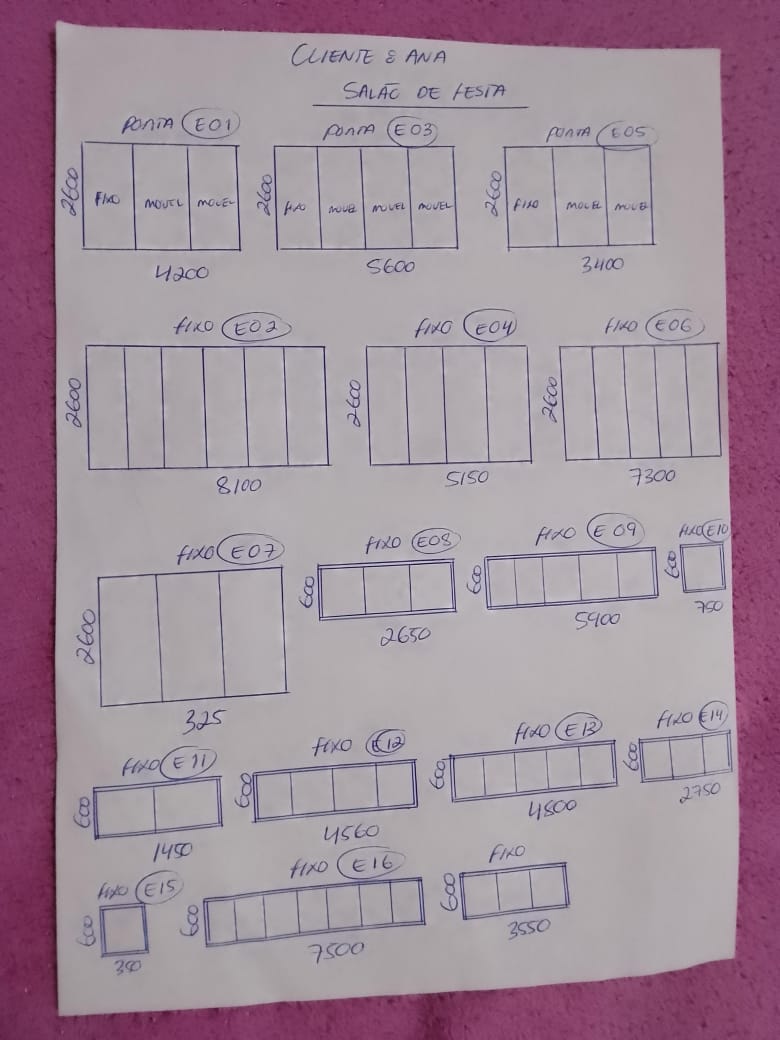 CLIENTE & ANA
SALÃO DE FESTA
PORTA E01
2600
FIXO MOVEL MOVEL
4200
PORTA E03
2600
FIXO MOVEL MOVEL MOVEL
5600
PORTA E05
2600
FIXO MOVEL MOVEL
3400
FIXO E02
2600
8100
FIXO E04
2600
5150
FIXO E06
2600
7300
FIXO E07
2600
325
FIXO E08
600
2650
FIXO E09
600
5900
FIXO E10
600
750
FIXO E11
600
1450
FIXO E12
600
4560
FIXO E13
600
4800
FIXO E14
600
2750
FIXO E15
600
350
FIXO E16
600
7500
FIXO
600
3550